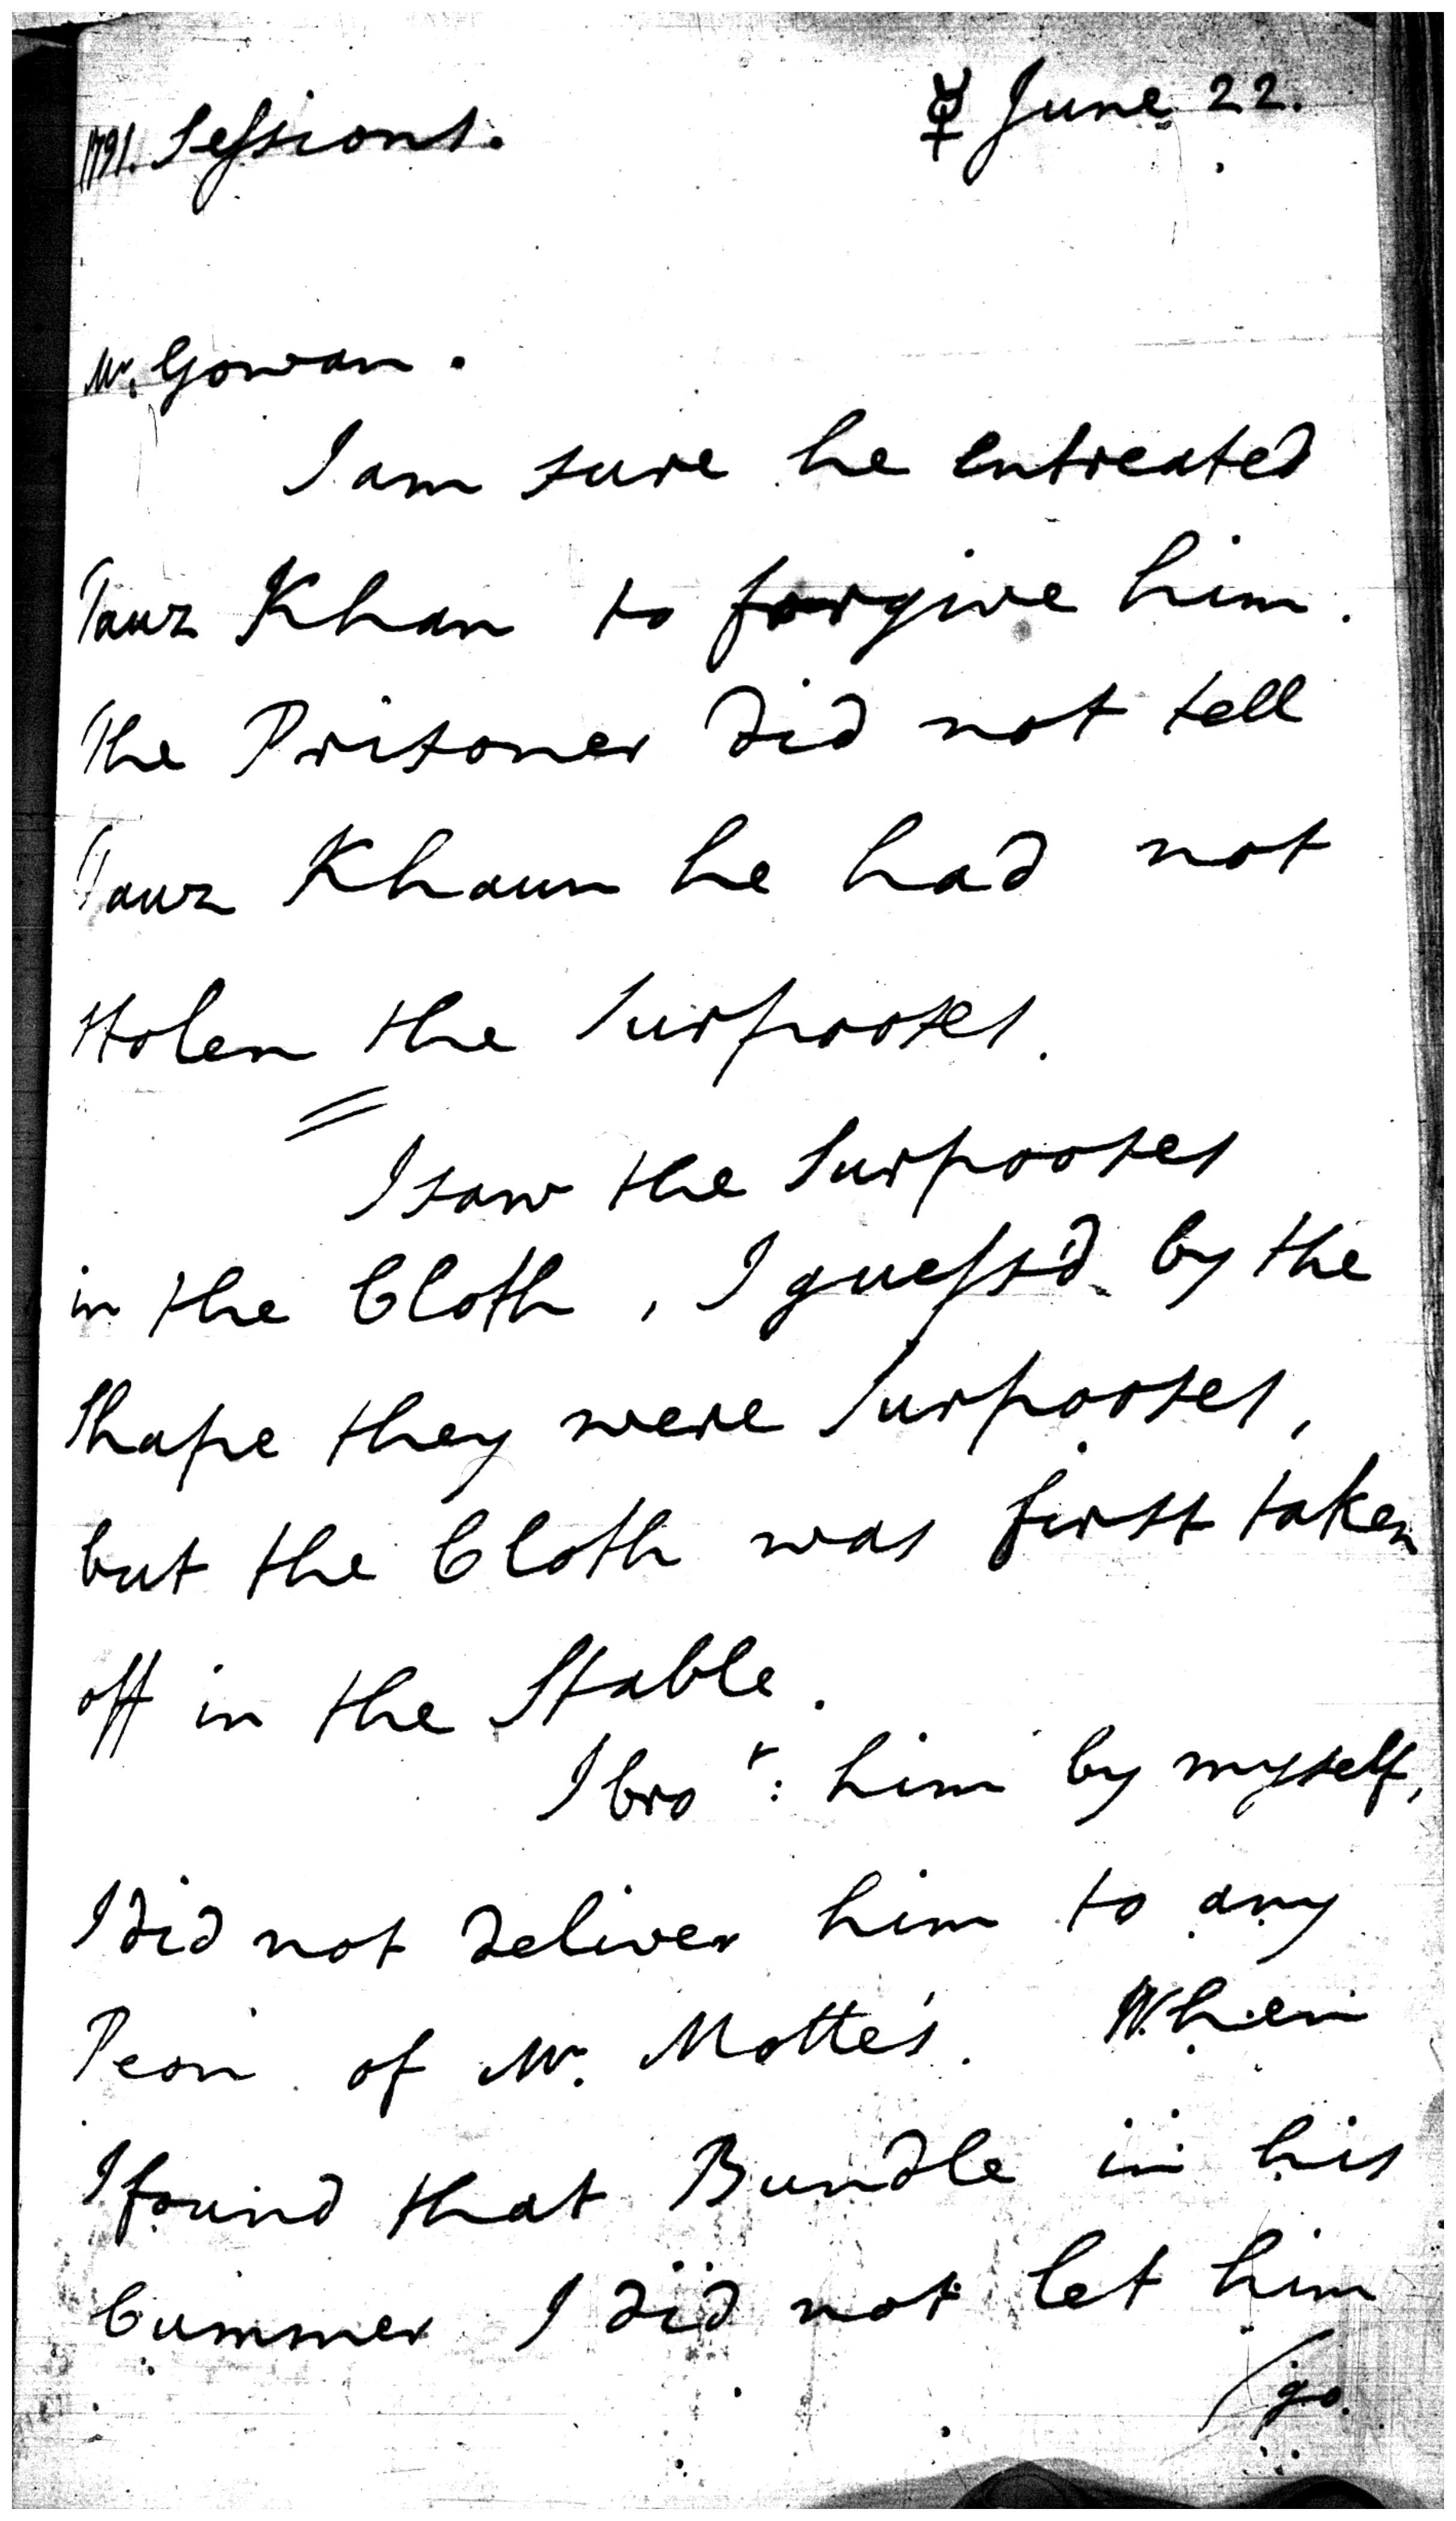 1791. Sessions. ☿ June 22.
Mr. Gowan.
I am sure he entreated
Tauz Khan to forgive him.
The Prisoner did not tell
Tauz Khaun he had not
stolen the Surpooses.
I saw the Surpooses
in the Cloth, I guess'd by the
Shape they were Surpooses,
but the Cloth was first taken
off in the Stable.
I bro t: him by myself,
I did not deliver him to any
Peon of Mr. Motte's. When
I found that Bundle in his
Cummer I did not let him
(go